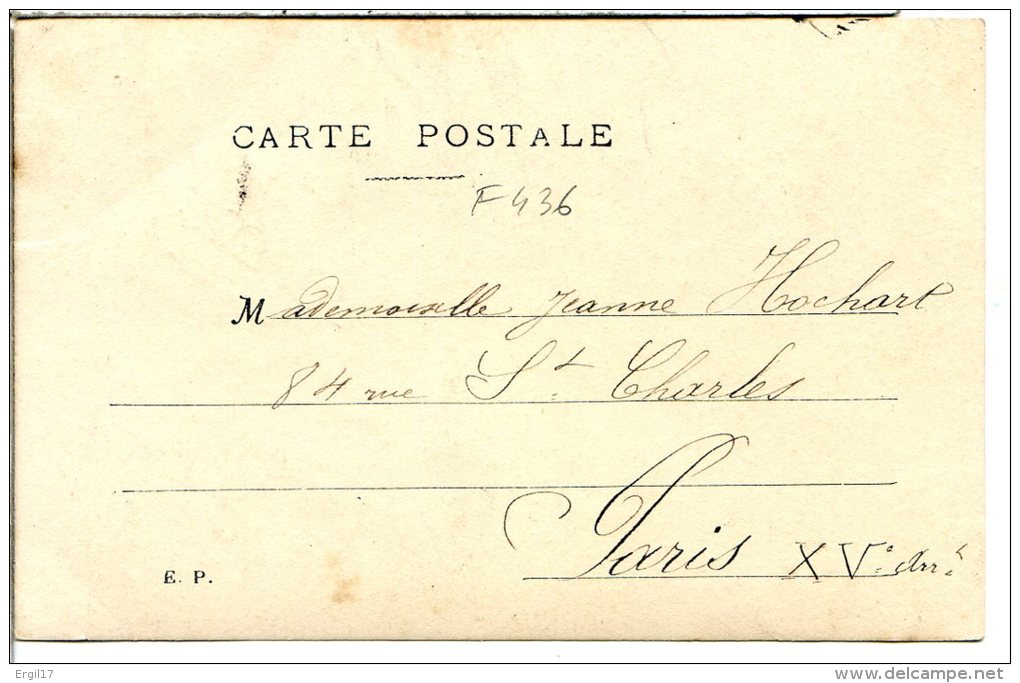 CARTE POSTALE
F436
Mademoiselle Jeanne Hochart
84 rue St Charles
Paris XVe Arrt
E. P.
Ergil17
www.delcampe.net